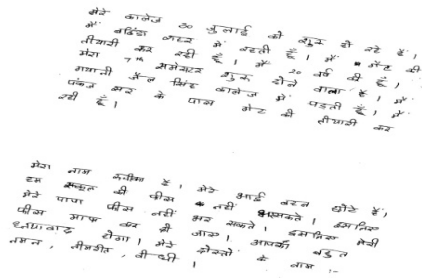 मेरे कालेज 30 जुलाई को शुरू हो रहे हैं।
मैं बठिंडा शहर में रहती हूँ। मैं गेट की
तैयारी कर रही हूँ। मैं 20 वर्ष की हूँ।
मेरा 7th समेसटर शुरू होने वाला है। मैं
ज्ञानी जैल सिंह कालेज में पड़ती हूँ। मैं
पंकज सर के पास गेट की तैयारी कर
रही हूँ।
मेरा नाम है। मेरे भाई बहन छोटे हैं।
हम स्कूल की फीस नहीं भर सकते। इसलिए
मेरे पापा फीस नहीं भर सकते। इसलिए मेरी
फीस माफ कर दी जाए। आपका बहुत
धन्यवाद होगा। मेरे दोस्तों के नाम :-
नमन,